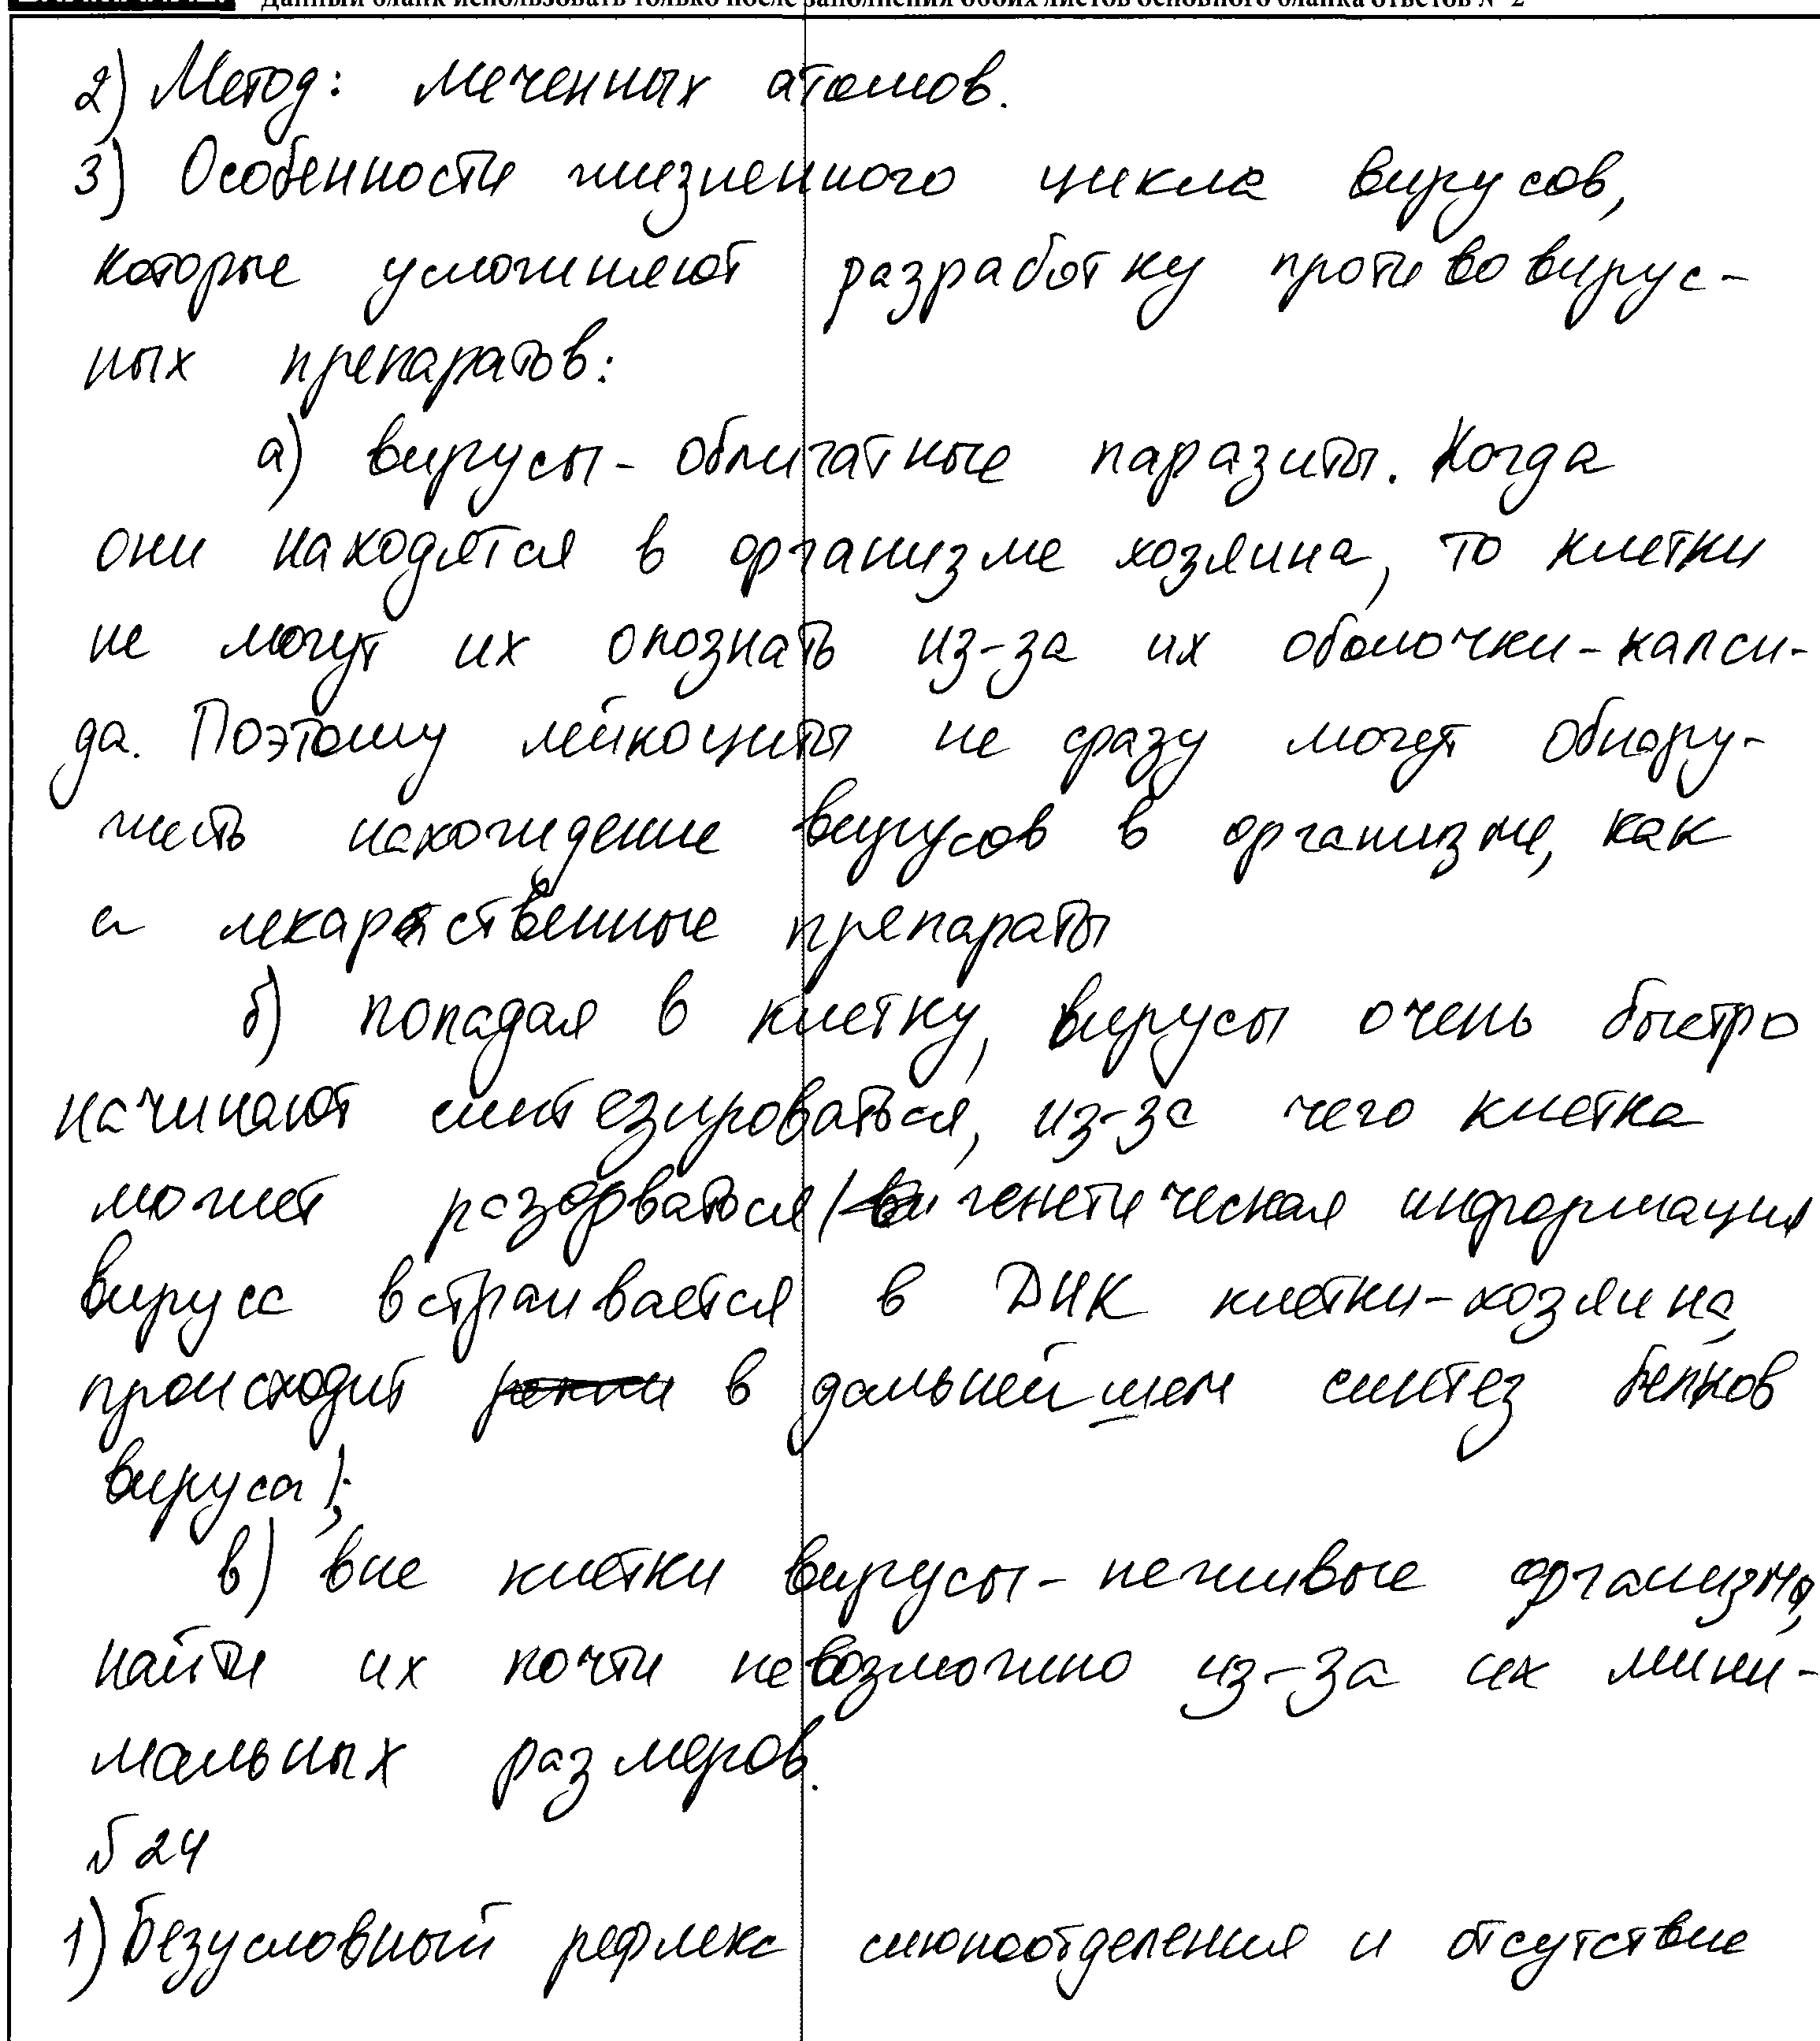 Данный бланк использовать только после заполнения обоих листов основного бланка ответов № 2
2) Метод: меченных атомов.
3) Особенности жизненного цикла вирусов,
которые усложняют разработку противовирус-
ных препаратов:
а) вирусы - облигатные паразиты. Когда
они находятся в организме хозяина, то клетки
не могут их опознать из-за их оболочки-капси-
да. Поэтому лейкоциты не сразу могут обнару-
жить нахождение вирусов в организме, как
и лекарственные препараты
б) попадая в клетку, вирусы очень быстро
начинают синтезироваться, из-за чего клетка
может разорваться (генетическая информация
вируса встраивается в ДНК клетки-хозяина,
происходит в дальнейшем синтез белков
вируса);
в) вне клетки вирусы - неживые организмы,
найти их почти невозможно из-за их мини-
мальных размеров.
№ 24
1) Безусловный рефлекс слюноотделения и отсутствие